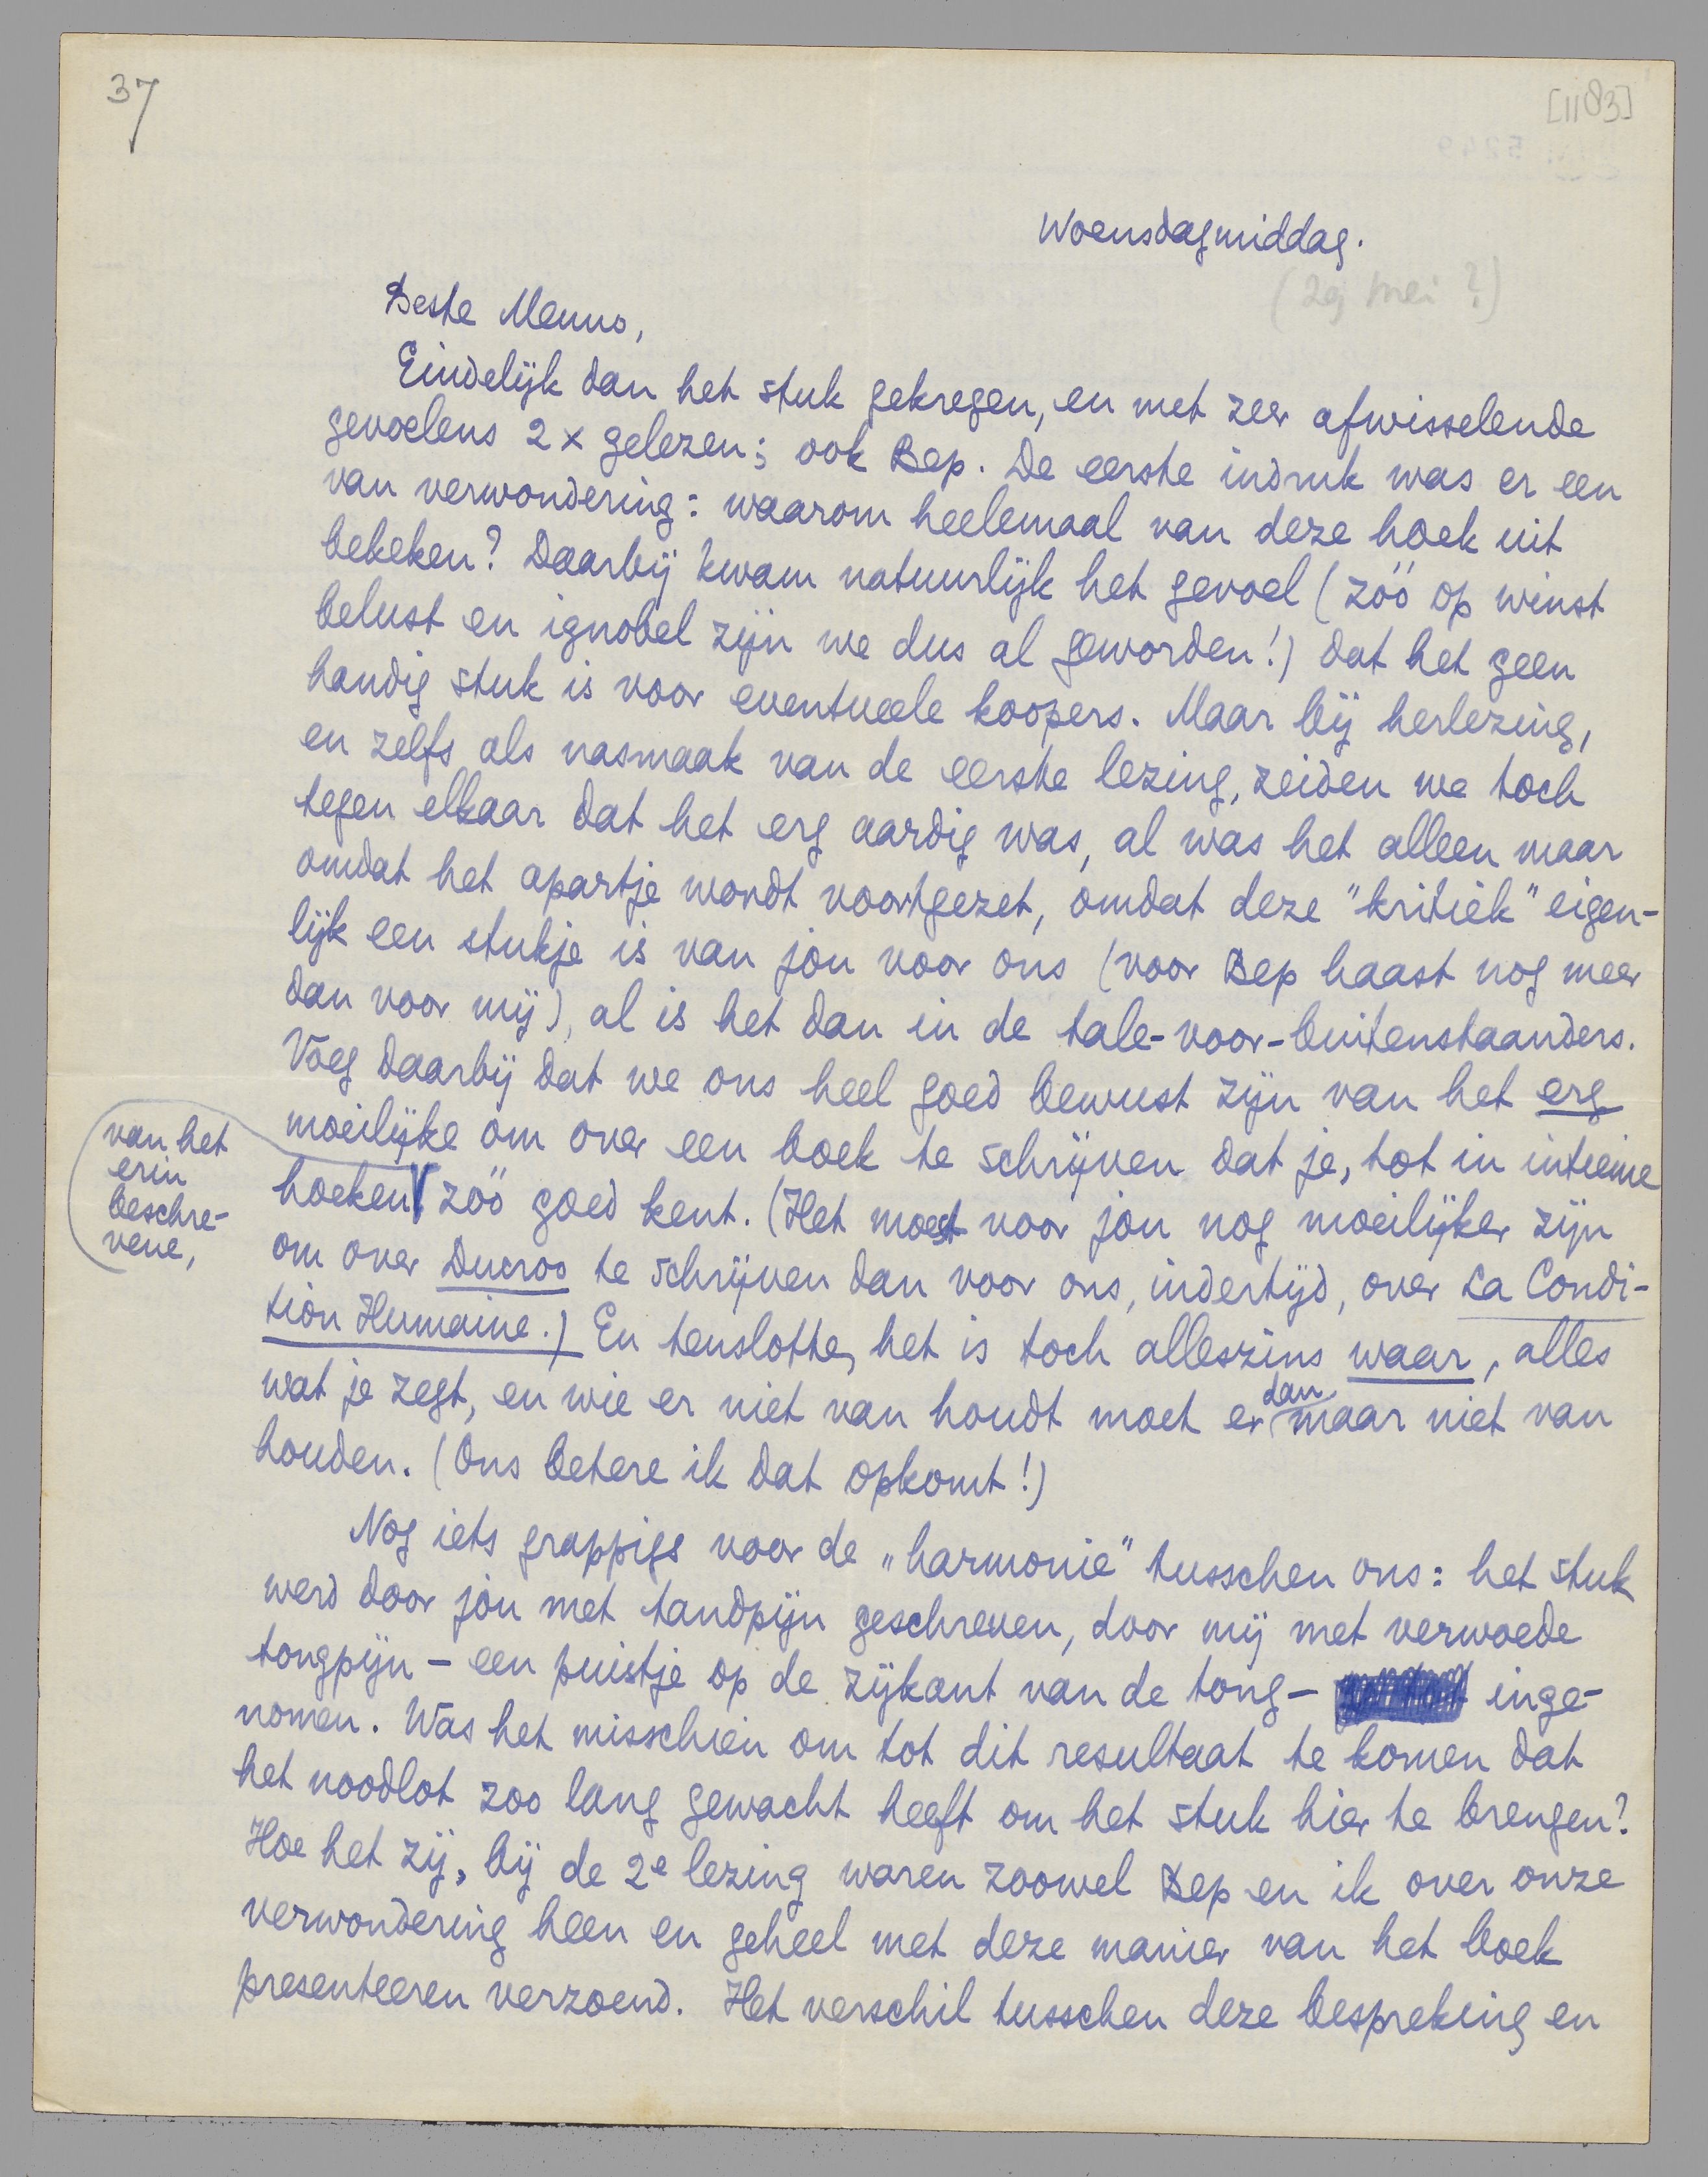 37
[1183]
Woensdagmiddag.
(29 mei ?)
Beste Menno,
Eindelijk dan het stuk gekregen, en met zeer afwisselende
gevoelens 2 x gelezen; ook Bep. De eerste indruk was er een
van verwondering: waarom heelemaal van deze hoek uit
bekeken? Daarbij kwam natuurlijk het gevoel (zóó op winst
belust en ignobel zijn we dus al geworden!) dat het geen
handig stuk is voor eventueele koopers. Maar bij herlezing,
en zelfs als nasmaak van de eerste lezing, zeiden we toch
tegen elkaar dat het erg aardig was, al was het alleen maar
omdat het apartje wordt voortgezet, omdat deze "kritiek" eigen-
lijk een stukje is van jou voor ons (voor Bep haast nog meer
dan voor mij), al is het dan in de tale-voor-buitenstaanders.
Voeg daarbij dat we ons heel goed bewust zijn van het erg
moeilijke om over een boek te schrijven dat je, tot in intieme
hoeken zóó goed kent. (Het moest voor jou nog moeilijker zijn
van het
erin
beschre-
vene,
om over Ducroo te schrijven dan voor ons, indertijd, over La Condi-
tion Humaine.) En tenslotte, het is toch alleszins waar, alles
wat je zegt, en wie er niet van houdt moet er dan maar niet van
houden. (Ons betere ik dat opkomt!)
Nog iets grappigs voor de „harmonie" tusschen ons: het stuk
werd door jóu met tandpijn geschreven, door mij met verwoede
tongpijn - een puistje op de zijkant van de tong - inge-
nomen. Was het misschien om tot dit resultaat te komen dat
het noodlot zoo lang gewacht heeft om het stuk hier te brengen?
Hoe het zij, bij de 2e lezing waren zoowel Bep en ik over onze
verwondering heen en geheel met deze manier van het boek
presenteeren verzoend. Het verschil tusschen deze bespreking en